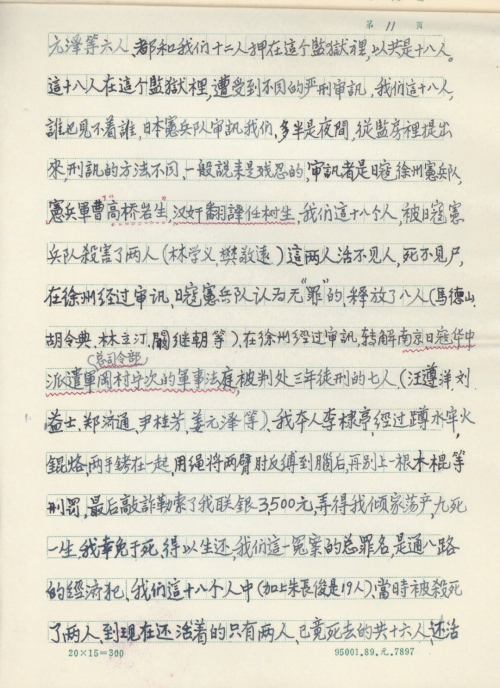 第 11 页
元泽等六人,都和我们十二人押在這个監獄裡,以共是十八人。
這十八人在這个監獄裡,遭受到不同的严刑审訊,我們這十八人,
誰也見不着誰,日本憲兵队审訊我們,多半是夜間,從監房裡提出
來,刑訊的方法不同,一般說来是残忍的,审訊者是日寇徐州憲兵队,
憲兵軍曹高桥岩生,汉奸翻譯任树生,我們這十八个人,被日寇憲
兵队殺害了两人(林学义,樊敬遠)這两人活不見人,死不見尸,
在徐州经过审訊,日寇憲兵队认为无"罪"的,釋放了八人(馬德山,
胡令典,林立汀,關继朝等),在徐州经过审訊,轉解南京日寇华中
总司令部
派遣軍岡村宁次的軍事法庭,被判处三年徒刑的七人(汪遵洋刘
益士,郑沛通,尹桂芳,姜元泽等)、我本人李棣亭,经过蹲水牢火
錕烙,两手銬在一起,用绳将两臂肘反縛到腦后,再别上一根木棍等
刑罰,最后敲詐勒索了我联银3,500元,弄得我倾家荡产,九死
一生,我幸免于死,得以生还,我們這一冤案的总罪名,是通八路
的經濟犯,我們這十八个人中(加上朱長俊是19人),當時被殺死
了两人,到现在还活着的只有两人,已竟死去的共十六人,还活
20×15=300 95001.89.元.7897